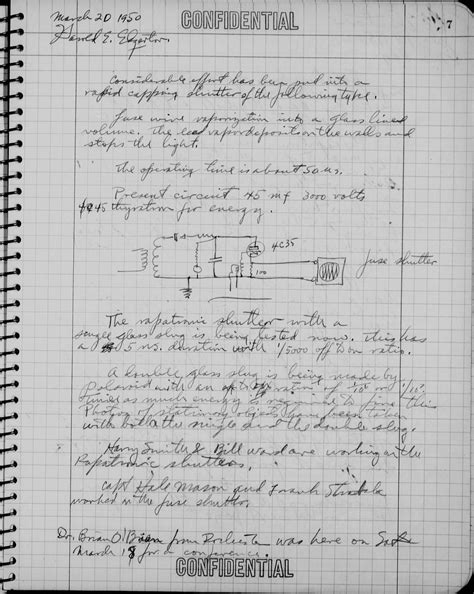 March 20 1950
CONFIDENTIAL
7
Harold E. Edgerton
Considerable effort has been put into a
rapid capping shutter of the following type.
Fuse wire vaporization into a glass lined
volume. The vapor deposits on the walls and
stops the light.
The operating time is about 50 us.
Present circuit 45 mf 3000 volts
thyratron for energy.
4C35
100
fuse shutter
The rapatronic shutter with a
single glass slug is being tested now. This has
a 5 us. duration with 1/5000 off to on ratio.
A double glass slug is being made by
Polaroid with an ratio of
times as much energy is required to fire this
Photos of stationary objects have been taken
with both the single and the double slug.
Harry Smith & Bill Ward are working on the
Rapatronic shutters.
Capt Hale Mason and Frank
worked on the fuse shutter.
Dr. Brian O'Brien from Rochester was here on Sat
March 18 for a conference.
CONFIDENTIAL